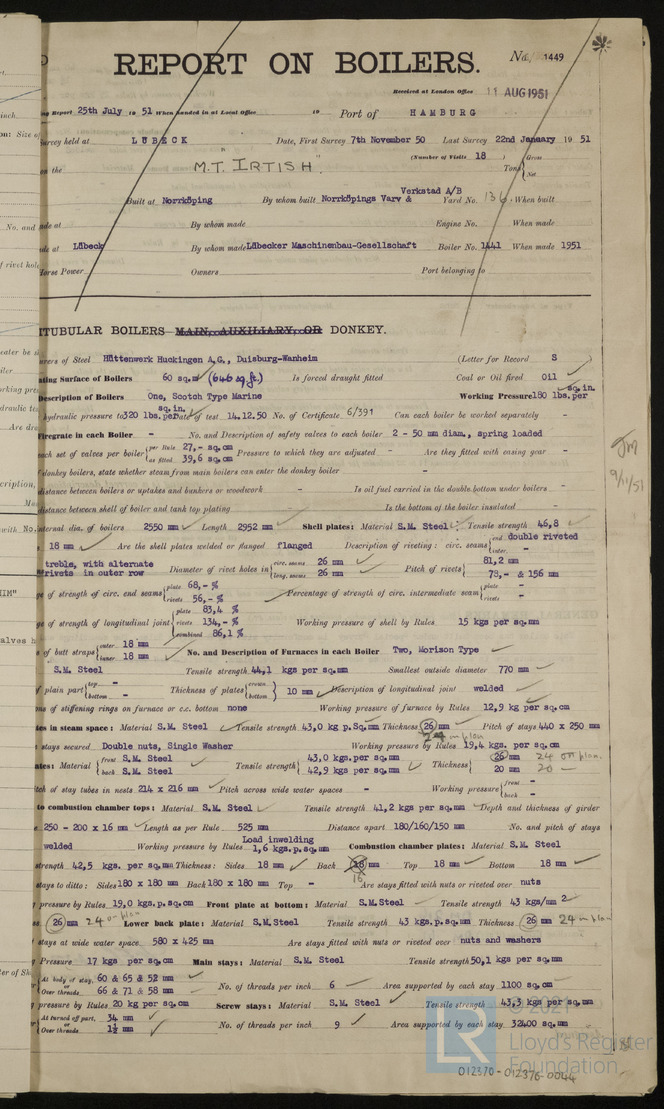 REPORT ON BOILERS. No. 1449
Received at London Office 11 AUG 1951
Report 25th July 19 51 When handed in at Local Office 19 Port of HAMBURG
Survey held at LÜBECK Date, First Survey 7th November 50 Last Survey 22nd January 19 51
on the M.T. "IRTISH" (Number of Visits 18 ) Tons { Gross Net
Built at Norrköping By whom built Norrköpings Varv & Verkstad A/B Yard No. 136 When built
made at By whom made Engine No. When made
made at Lübeck By whom made Lübecker Maschinenbau-Gesellschaft Boiler No. 1441 When made 1951
Horse Power Owners Port belonging to
ITUBULAR BOILERS MAIN, AUXILIARY, OR DONKEY.
urers of Steel Hüttenwerk Huckingen A.G., Duisburg-Wanheim (Letter for Record S )
ating Surface of Boilers 60 sq.m (646 sq.ft.) Is forced draught fitted Coal or Oil fired Oil
Description of Boilers One, Scotch Type Marine Working Pressure 180 lbs. per sq.in.
hydraulic pressure to 320 lbs. per sq.in. Date of test 14.12.50 No. of Certificate 6/391 Can each boiler be worked separately -
Firegrate in each Boiler - No. and Description of safety valves to each boiler 2 - 50 mm diam., spring loaded
each set of valves per boiler { per Rule 27,- sq.cm as fitted 39,6 sq.cm Pressure to which they are adjusted - Are they fitted with easing gear -
donkey boilers, state whether steam from main boilers can enter the donkey boiler -
distance between boilers or uptakes and bunkers or woodwork - Is oil fuel carried in the double bottom under boilers -
distance between shell of boiler and tank top plating - Is the bottom of the boiler insulated -
internal dia. of boilers 2550 mm Length 2952 mm Shell plates: Material S.M. Steel Tensile strength 46,8
18 mm Are the shell plates welded or flanged flanged Description of riveting: circ. seams { end double riveted inter. -
treble, with alternate rivets in outer row Diameter of rivet holes in { circ. seams 26 mm long. seams 26 mm Pitch of rivets { 81,2 mm 78,- & 156 mm
ge of strength of circ. end seams { plate 68,- % rivets 56,- % Percentage of strength of circ. intermediate seam { plate - rivets -
ge of strength of longitudinal joint { plate 83,4 % rivets 134,- % combined 86,1 % Working pressure of shell by Rules 15 kgs per sq.cm
of butt straps { outer 18 mm inner 18 mm No. and Description of Furnaces in each Boiler Two, Morison Type
S.M. Steel Tensile strength 44,1 kgs per sq.mm Smallest outside diameter 770 mm
plain part { top - bottom - Thickness of plates { crown bottom } 10 mm Description of longitudinal joint welded
ns of stiffening rings on furnace or c.c. bottom none Working pressure of furnace by Rules 12,9 kg per sq.cm
tes in steam space: Material S.M. Steel Tensile strength 43,0 kg p.Sq.mm Thickness 26 mm Pitch of stays 440 x 250 mm
24 on plan
stays secured Double nuts, Single Washer Working pressure by Rules 19,4 kgs. per sq.cm
ates: Material { front S.M. Steel back S.M. Steel Tensile strength { 43,0 kgs.per sq.mm 42,9 kgs.per sq.mm Thickness { 26 mm 24 on plan. 20 mm 20 -
tch of stay tubes in nests 214 x 216 mm Pitch across wide water spaces - Working pressure { front - back -
to combustion chamber tops: Material S.M. Steel Tensile strength 41,2 kgs per sq.mm Depth and thickness of girder
250 - 200 x 16 mm Length as per Rule 525 mm Distance apart 180/160/150 mm No. and pitch of stays
welded Working pressure by Rules Load inwelding 1,6 kgs.p.sq.mm Combustion chamber plates: Material S.M. Steel
strength 42,5 kgs. per sq.mm Thickness: Sides 18 mm Back 18 mm Top 18 mm Bottom 18 mm
16
stays to ditto: Sides 180 x 180 mm Back 180 x 180 mm Top - Are stays fitted with nuts or riveted over nuts
pressure by Rules 19,0 kgs.p.sq.cm Front plate at bottom: Material S.M.Steel Tensile strength 43 kgs/mm 2
26 mm 24 on plan Lower back plate: Material S.M.Steel Tensile strength 43 kgs.p.sq.mm Thickness 26 mm 24 on plan
stays at wide water space 580 x 425 mm Are stays fitted with nuts or riveted over nuts and washers
Pressure 17 kgs per sq.cm Main stays: Material S.M. Steel Tensile strength 50,1 kgs.per sq.mm
{ At body of stay, or Over threads 60 & 65 & 52 mm 66 & 71 & 58 mm No. of threads per inch 6 Area supported by each stay 1100 sq.cm
pressure by Rules 20 kg per sq.cm Screw stays: Material S.M. Steel Tensile strength 43,3 kgs per sq.mm
{ At turned off part, or Over threads 34 mm 1½ mm No. of threads per inch 9 Area supported by each stay 32400 sq.mm
JM
9/11/51
© 2021
LR Lloyd's Register Foundation
012370-012376-0044